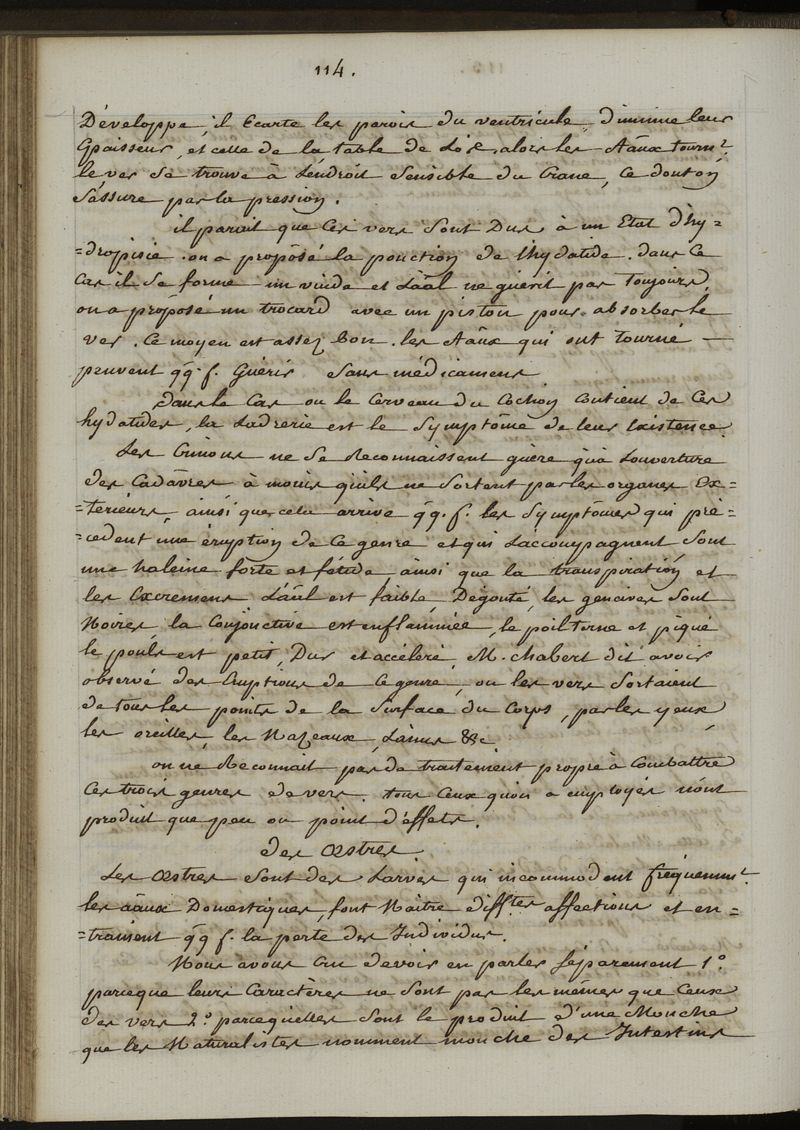 114.
Développe, il Ecarte les parois du ventricule, diminue leur
Epaisseur, et celle de la table de L'os, alors les Aãux tournt
le ver se trouve à Lendroit sensible du Crane, Ce dont on
s'assure par la pression.
il parait que Ces vers sont Dus à un Etat d'hy-
-dropisie. on a proposé la ponction de l'hydatide. dans Ce
Cas il se forme un vuide et L'aãl ne guérit pas Toujours.
on a proposé un trocard avec un piston pour absorber le
ver. Ce moyen est assez Bon. les Aãux qui ont tourné —
peuvent qq. f. Guérir sans médicamens
Dans le Cas ou le Cerveau du Cochon Contient de Ces
hydatides, la Ladrerie est le symptôme de leur Existence.
Les Crinons ne se Reconnaissent guère qu'à Louverture
des Cadâvres à moins qu'ils ne sortent par les organes Ex-
-térieurs, ainsi que cela arrive qq. f. les symptômes qui pré-
-cedent une éruption de Ce genre et qui L'accompagnent sont
une haleine forte et fétide ainsi que la transpiration et
les Excremens L'aãl est faible, Dégouté, les gencives sont
Noires, la Conjonctive est enflammée, le poil terne et piqué
le pouls est petit, Dur et accéléré, M. Chabert dit avoir
observé des Eruptions de Ce genre, ou les vers sortaient
de tous les points de la surface du Corps, par les yeux,
les oreilles, les Nazeaux, L'anus &c.
on ne Reconnait pas de traitement propre à Combattre
Ces trois genres de vers. tous Ceux qu'on a employés n'ont
produit que peu ou point d'éffets.
des Œstres.
Les Œstres sont des Larves qui incommodent fréquemmt
les aãux Domestiques, font Naître difftes affections et en-
-trainent qq f. la perte des Individus.
Nous avons Cru devoir en parler séparement 1°
parceque leurs Caractères ne sont pas les mêmes que Ceux
des vers 2° parcequ'elles sont le produit d'une Mouche
que les Naturalistes nomment mouche des Intestins